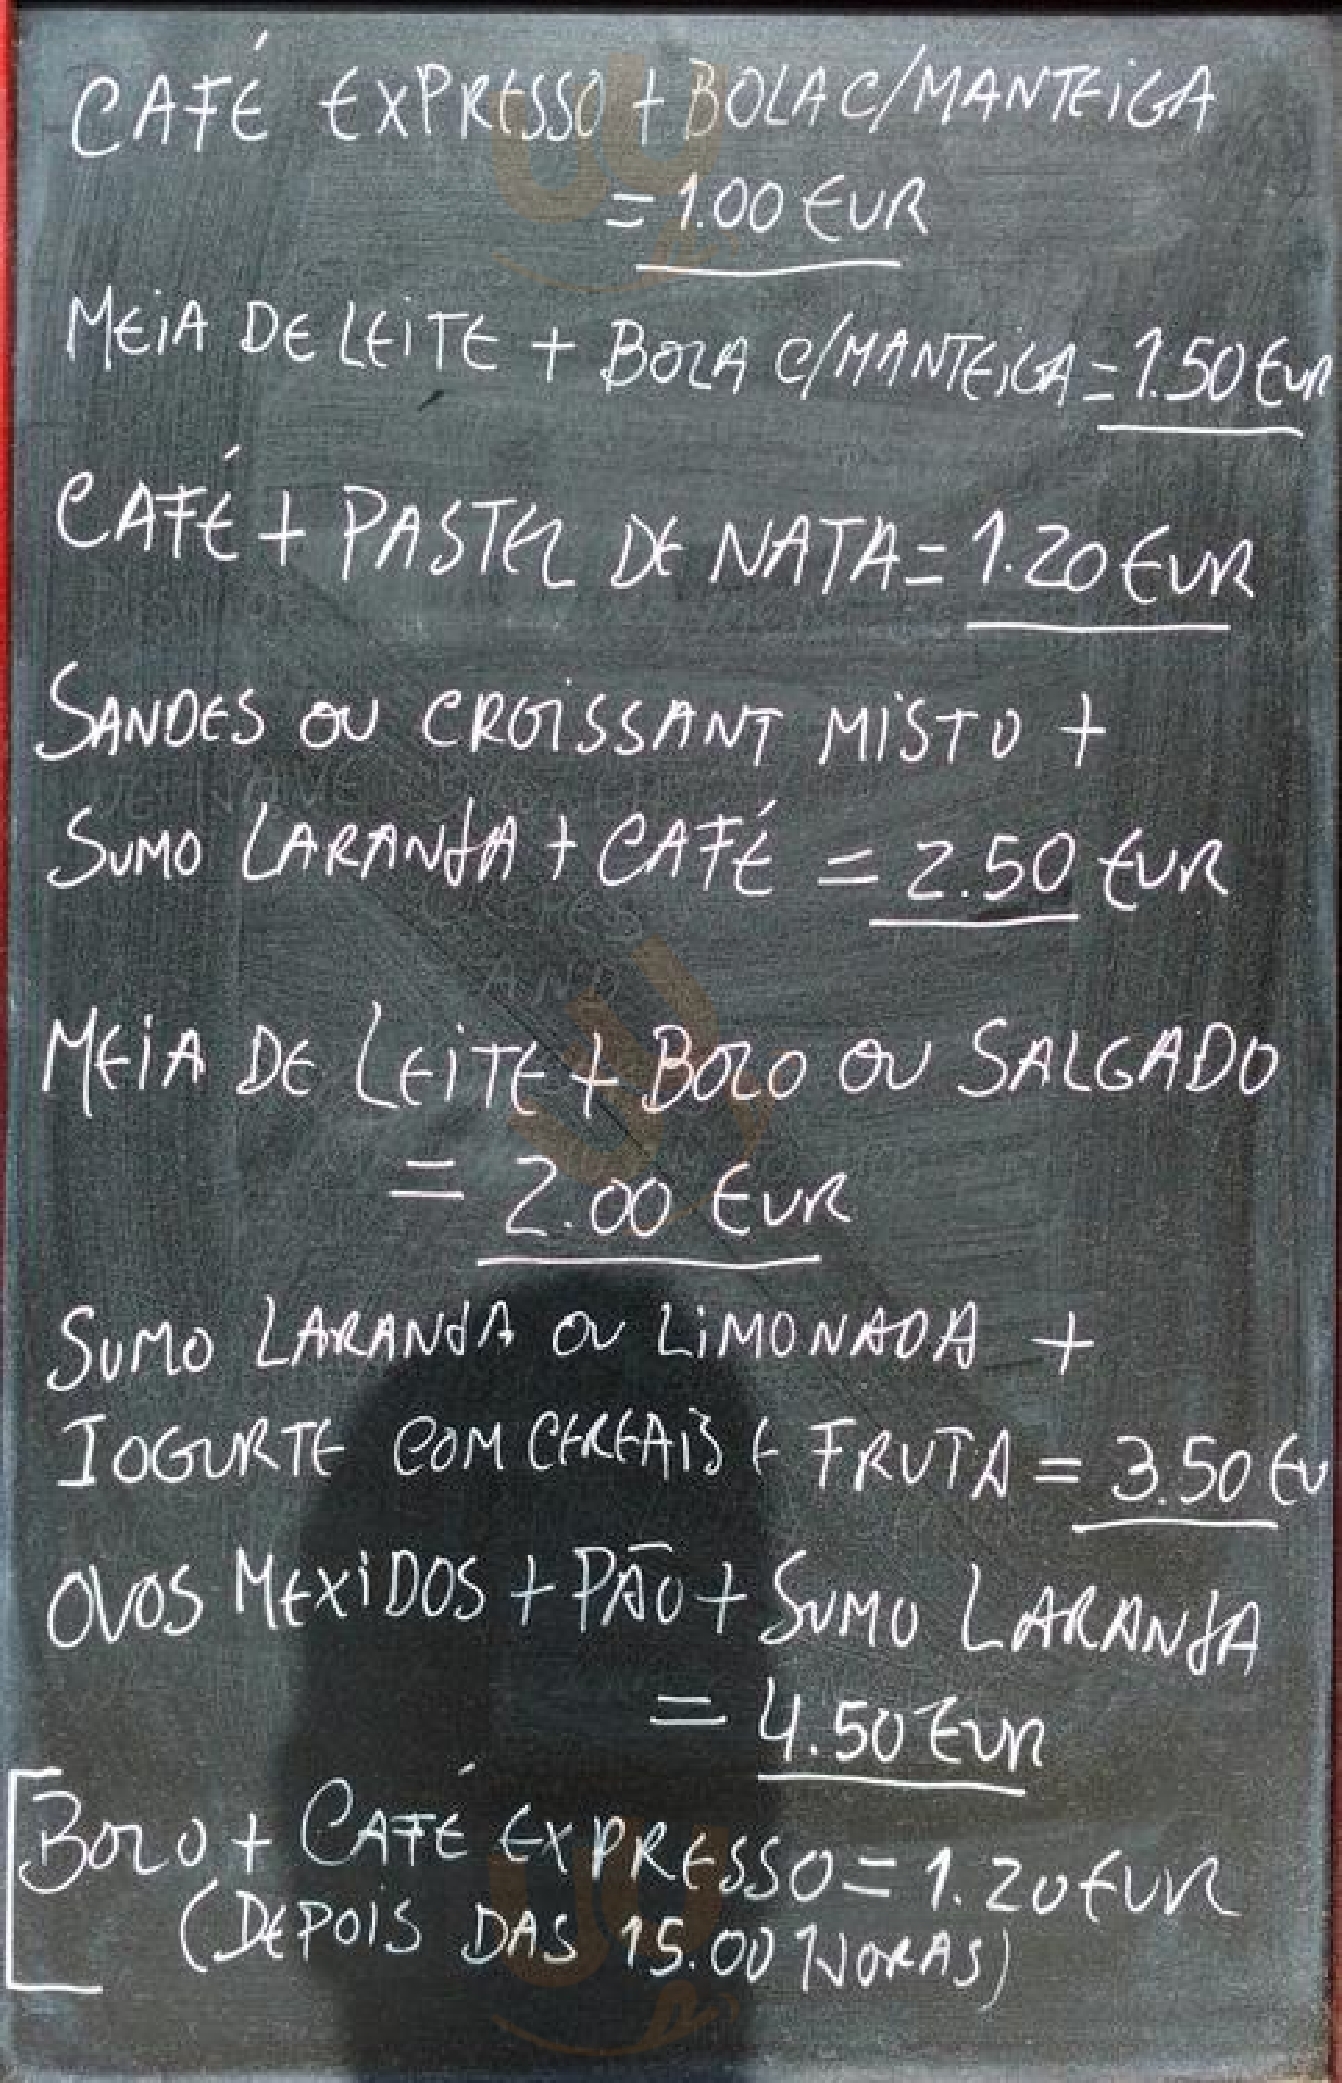 CAFÉ EXPRESSO + BOLA C/MANTEIGA
= 1.00 EUR
MEIA DE LEITE + BOLA C/MANTEIGA = 1.50 EUR
CAFÉ + PASTEL DE NATA = 1.20 EUR
SANDES OU CROISSANT MISTO +
SUMO LARANJA + CAFÉ = 2.50 EUR
MEIA DE LEITE + BOLO OU SALGADO
= 2.00 EUR
SUMO LARANJA OU LIMONADA +
IOGURTE COM CEREAIS E FRUTA = 3.50 EU
OVOS MEXIDOS + PÃO + SUMO LARANJA
= 4.50 EUR
BOLO + CAFÉ EXPRESSO = 1.20 EUR
(DEPOIS DAS 15.00 HORAS)